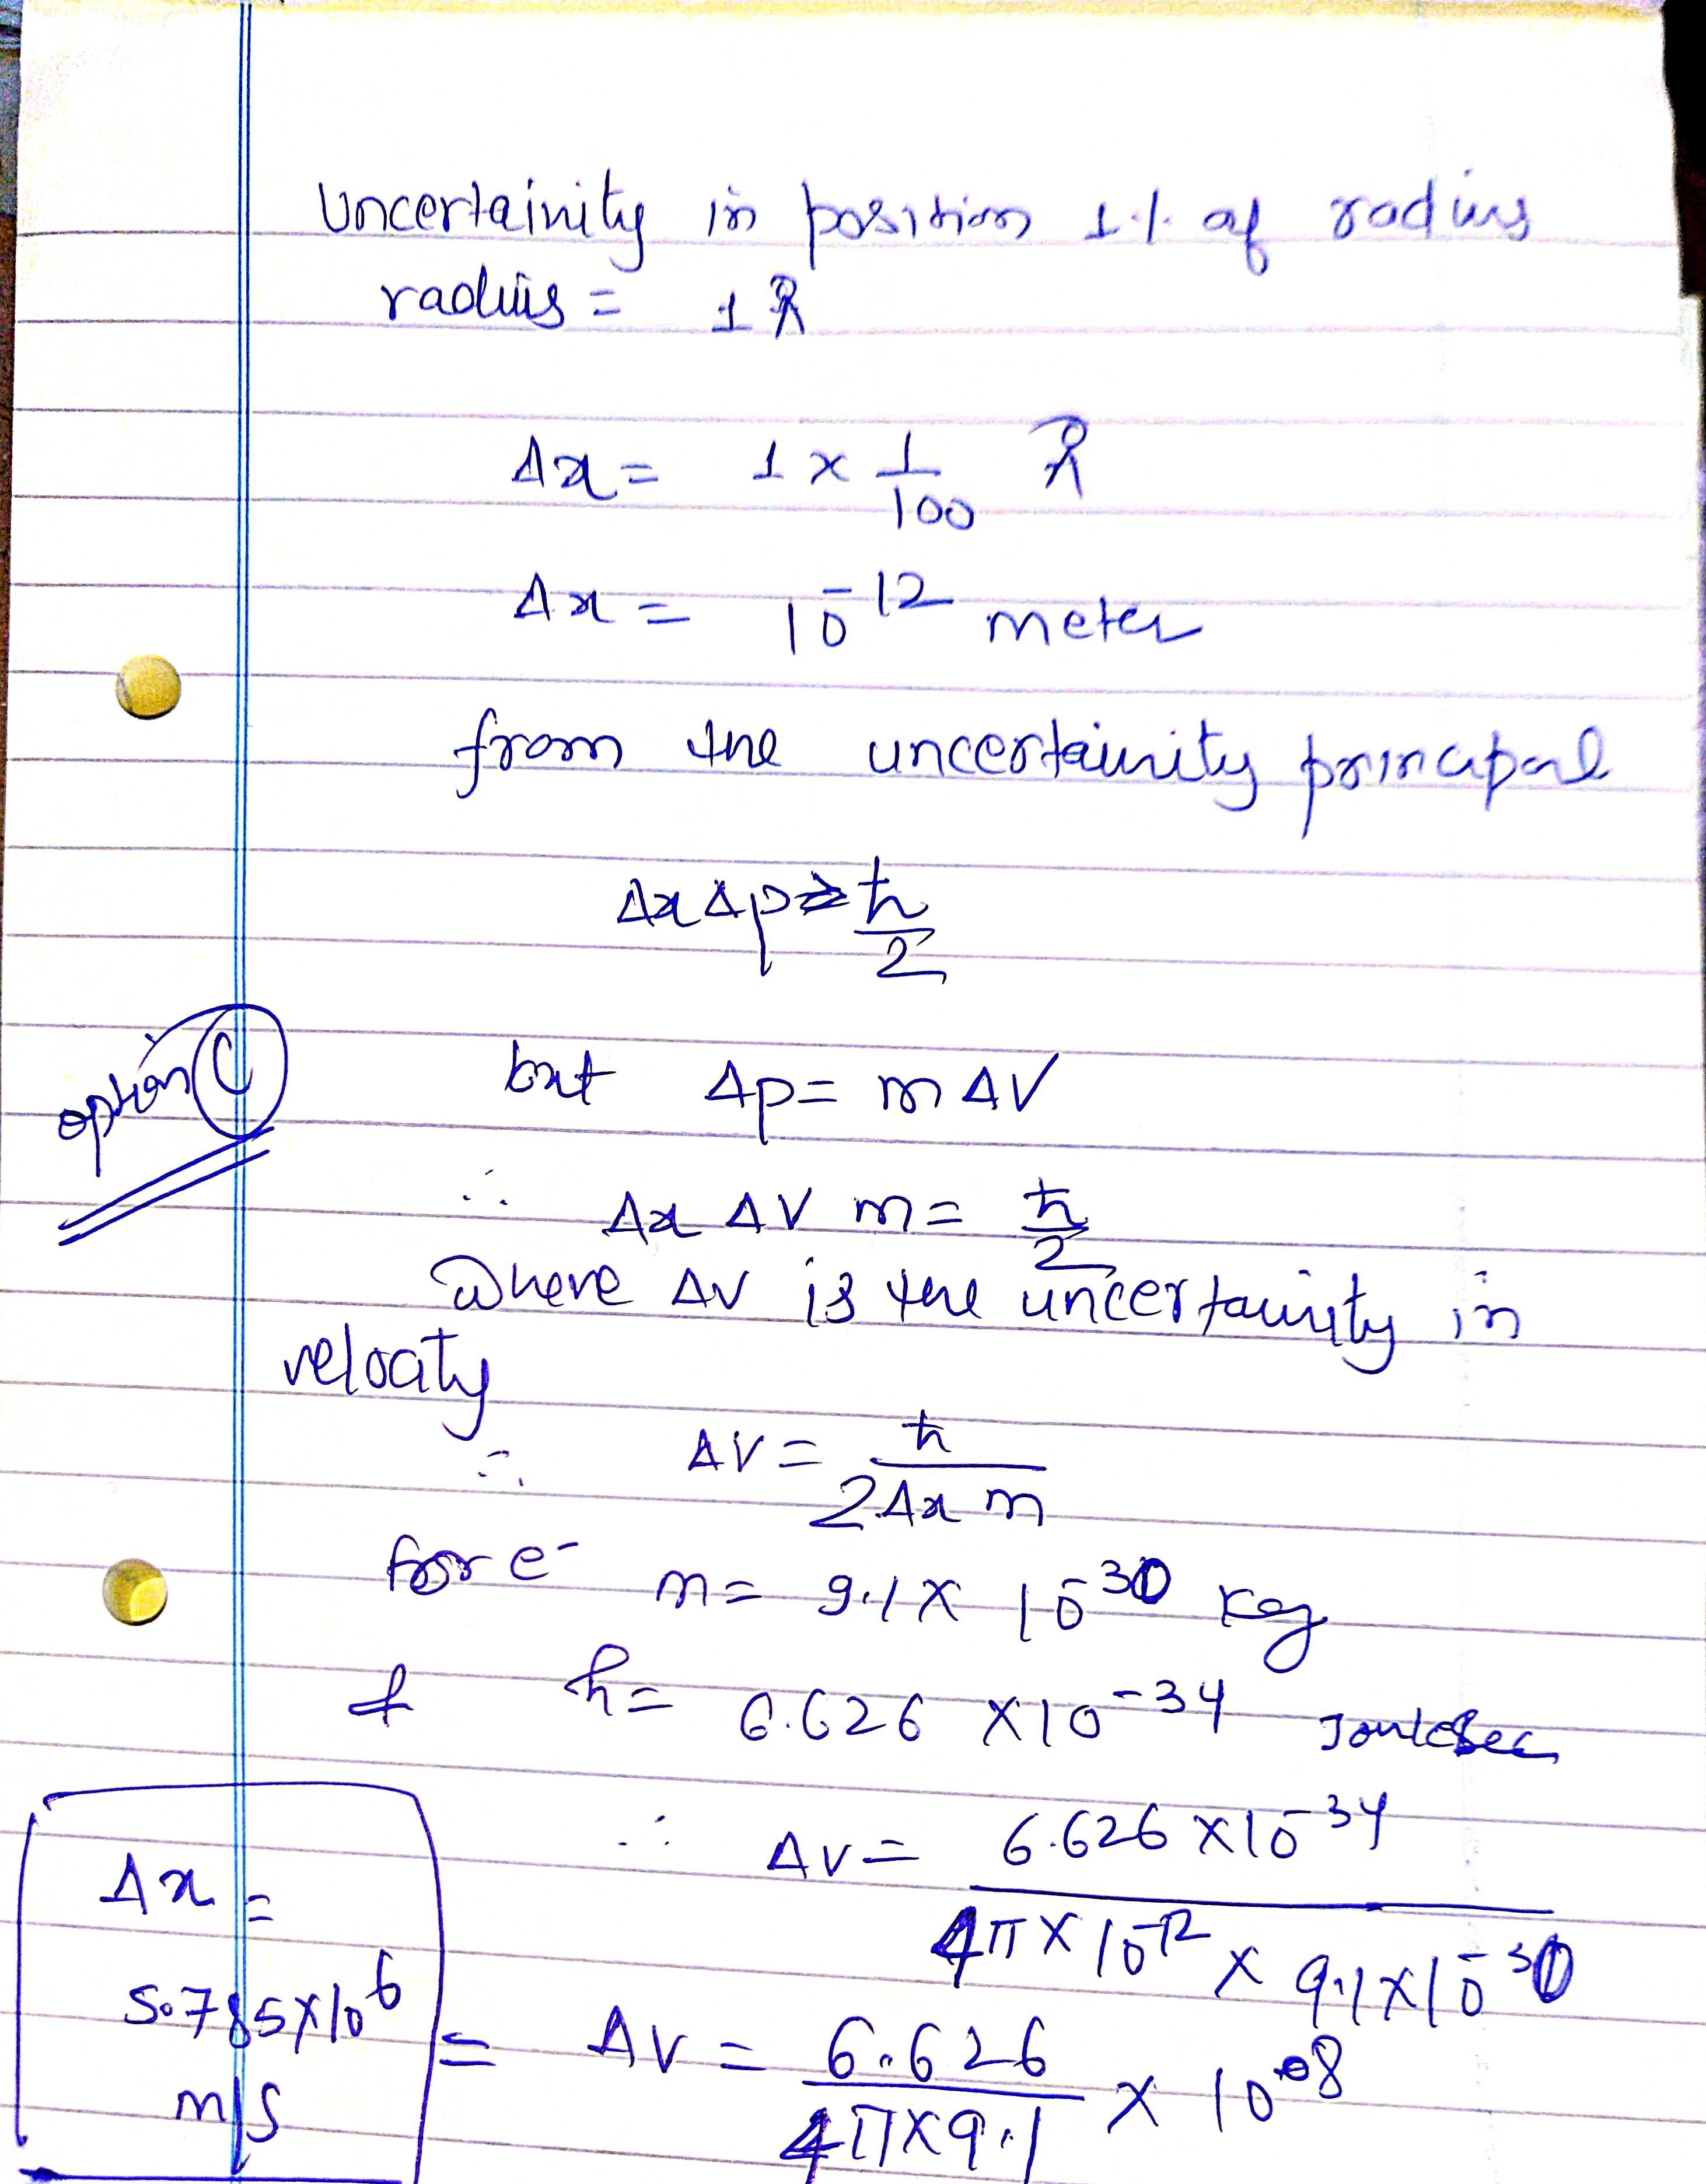 Uncertainity in position 1% of radius
radius = 1 Å
Δx = 1 × 1/100 Å
Δx = 10^-12 meter
from the uncertainity principal
Δx Δp ≥ ħ/2
option C
but Δp = m ΔV
∴ Δx ΔV m = ħ/2
Where ΔV is the uncertainity in
velocity
∴ ΔV = ħ / 2Δx m
for e- m = 9.1 × 10^-30 Kg
& h = 6.626 × 10^-34 Joule sec
∴ ΔV = 6.626 × 10^-34 / 4π × 10^-12 × 9.1 × 10^-30
= ΔV = 6.626 / 4π × 9.1 × 10^08
Δx =
5.785 × 10^6
m/s